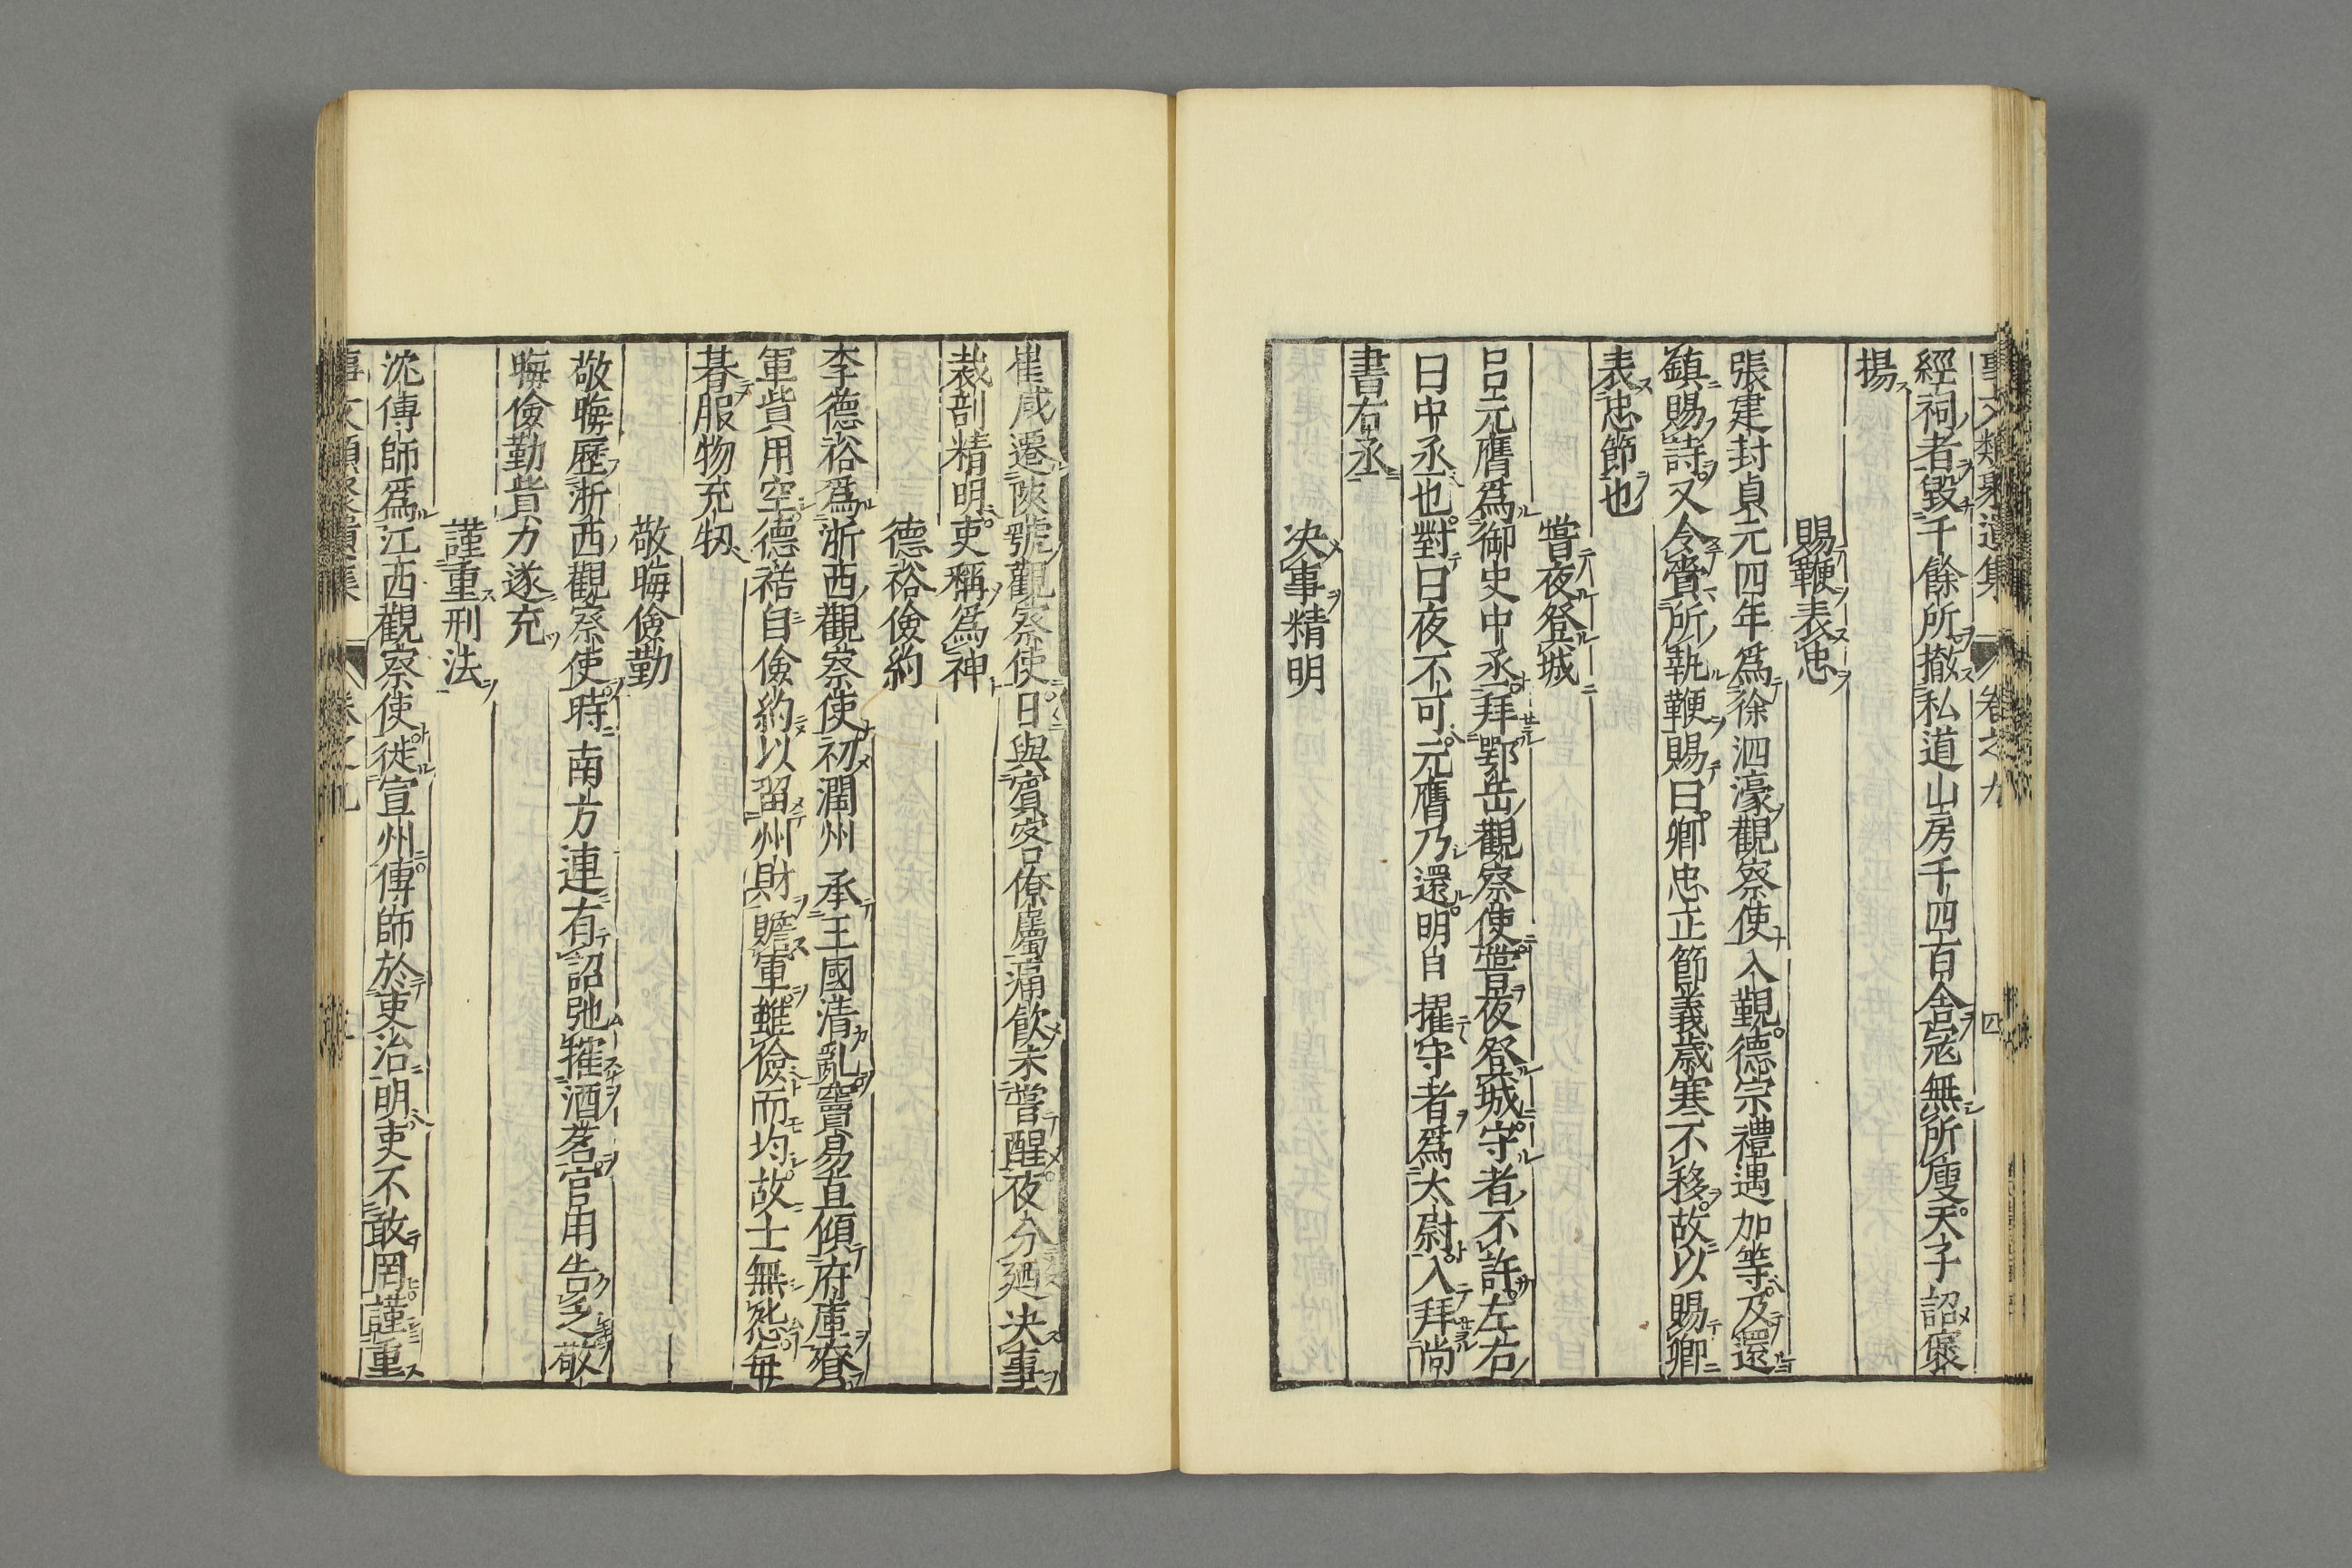 事文類聚遺集 卷之九 四
經祠者毀千餘所撤私道山房千四百舍寇無所廋天子詔褒
揚
賜鞭表忠
張建封貞元四年爲徐泗濠觀察使入覲德宗禮遇加等及還
鎮賜詩又令賫所執鞭賜曰卿忠正節義歲寒不移故以賜卿
表忠節也
嘗夜登城
呂元膺爲御史中丞拜鄂岳觀察使嘗夜登城守者不許左右
曰中丞也對曰夜不可元膺乃還明白擢守者爲大尉入拜尚
書右丞
决事精明
崔咸遷陝虢觀察使日與賓客僚屬痛飲未嘗醒夜分廼决事
裁剖精明吏稱爲神
德裕儉約
李德裕爲浙西觀察使初潤州承王國清亂竇易直傾府庫賚
軍貲用空德裕自儉約以留州財贍軍雖儉而均故士無怨每
朞服物充牣
敬晦儉勤
敬晦歷浙西觀察使時南方連有詔弛搉酒茗官用告乏敬
晦儉勤貲力遂充
謹重刑法
沈傳師爲江西觀察使徙宣州傳師於吏治明吏不敢罔謹重
事文類聚遺集 卷之九